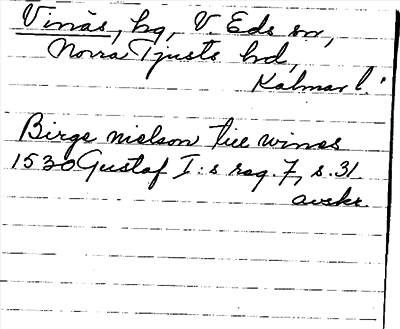 Vinäs, hg, V. Eds sn,
Norra Tjusts hd,
Kalmar l.
Birge nielson tiil winäs
1530 Gustaf I:s reg. 7, s. 31
avskr.